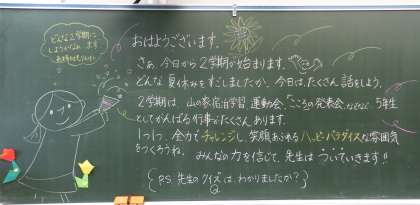 どんな2学期に
しようかなぁ
おはようございます。
さぁ、今日から2学期が始まります。
どんな夏休みをすごしましたか。今日は、たくさん話をしよう。
2学期は 山の家宿泊学習 運動会、こころの発表会、などなど 5年生
としてがんばる行事がたくさんあります。
1つ1つ、全力でチャレンジし、笑顔あふれるハッピーパラダイスな雰囲気
をつくろうね。 みんなの力を信じて、先生は ついていきます!!
P.S. 先生のクイズは、わかりましたか?